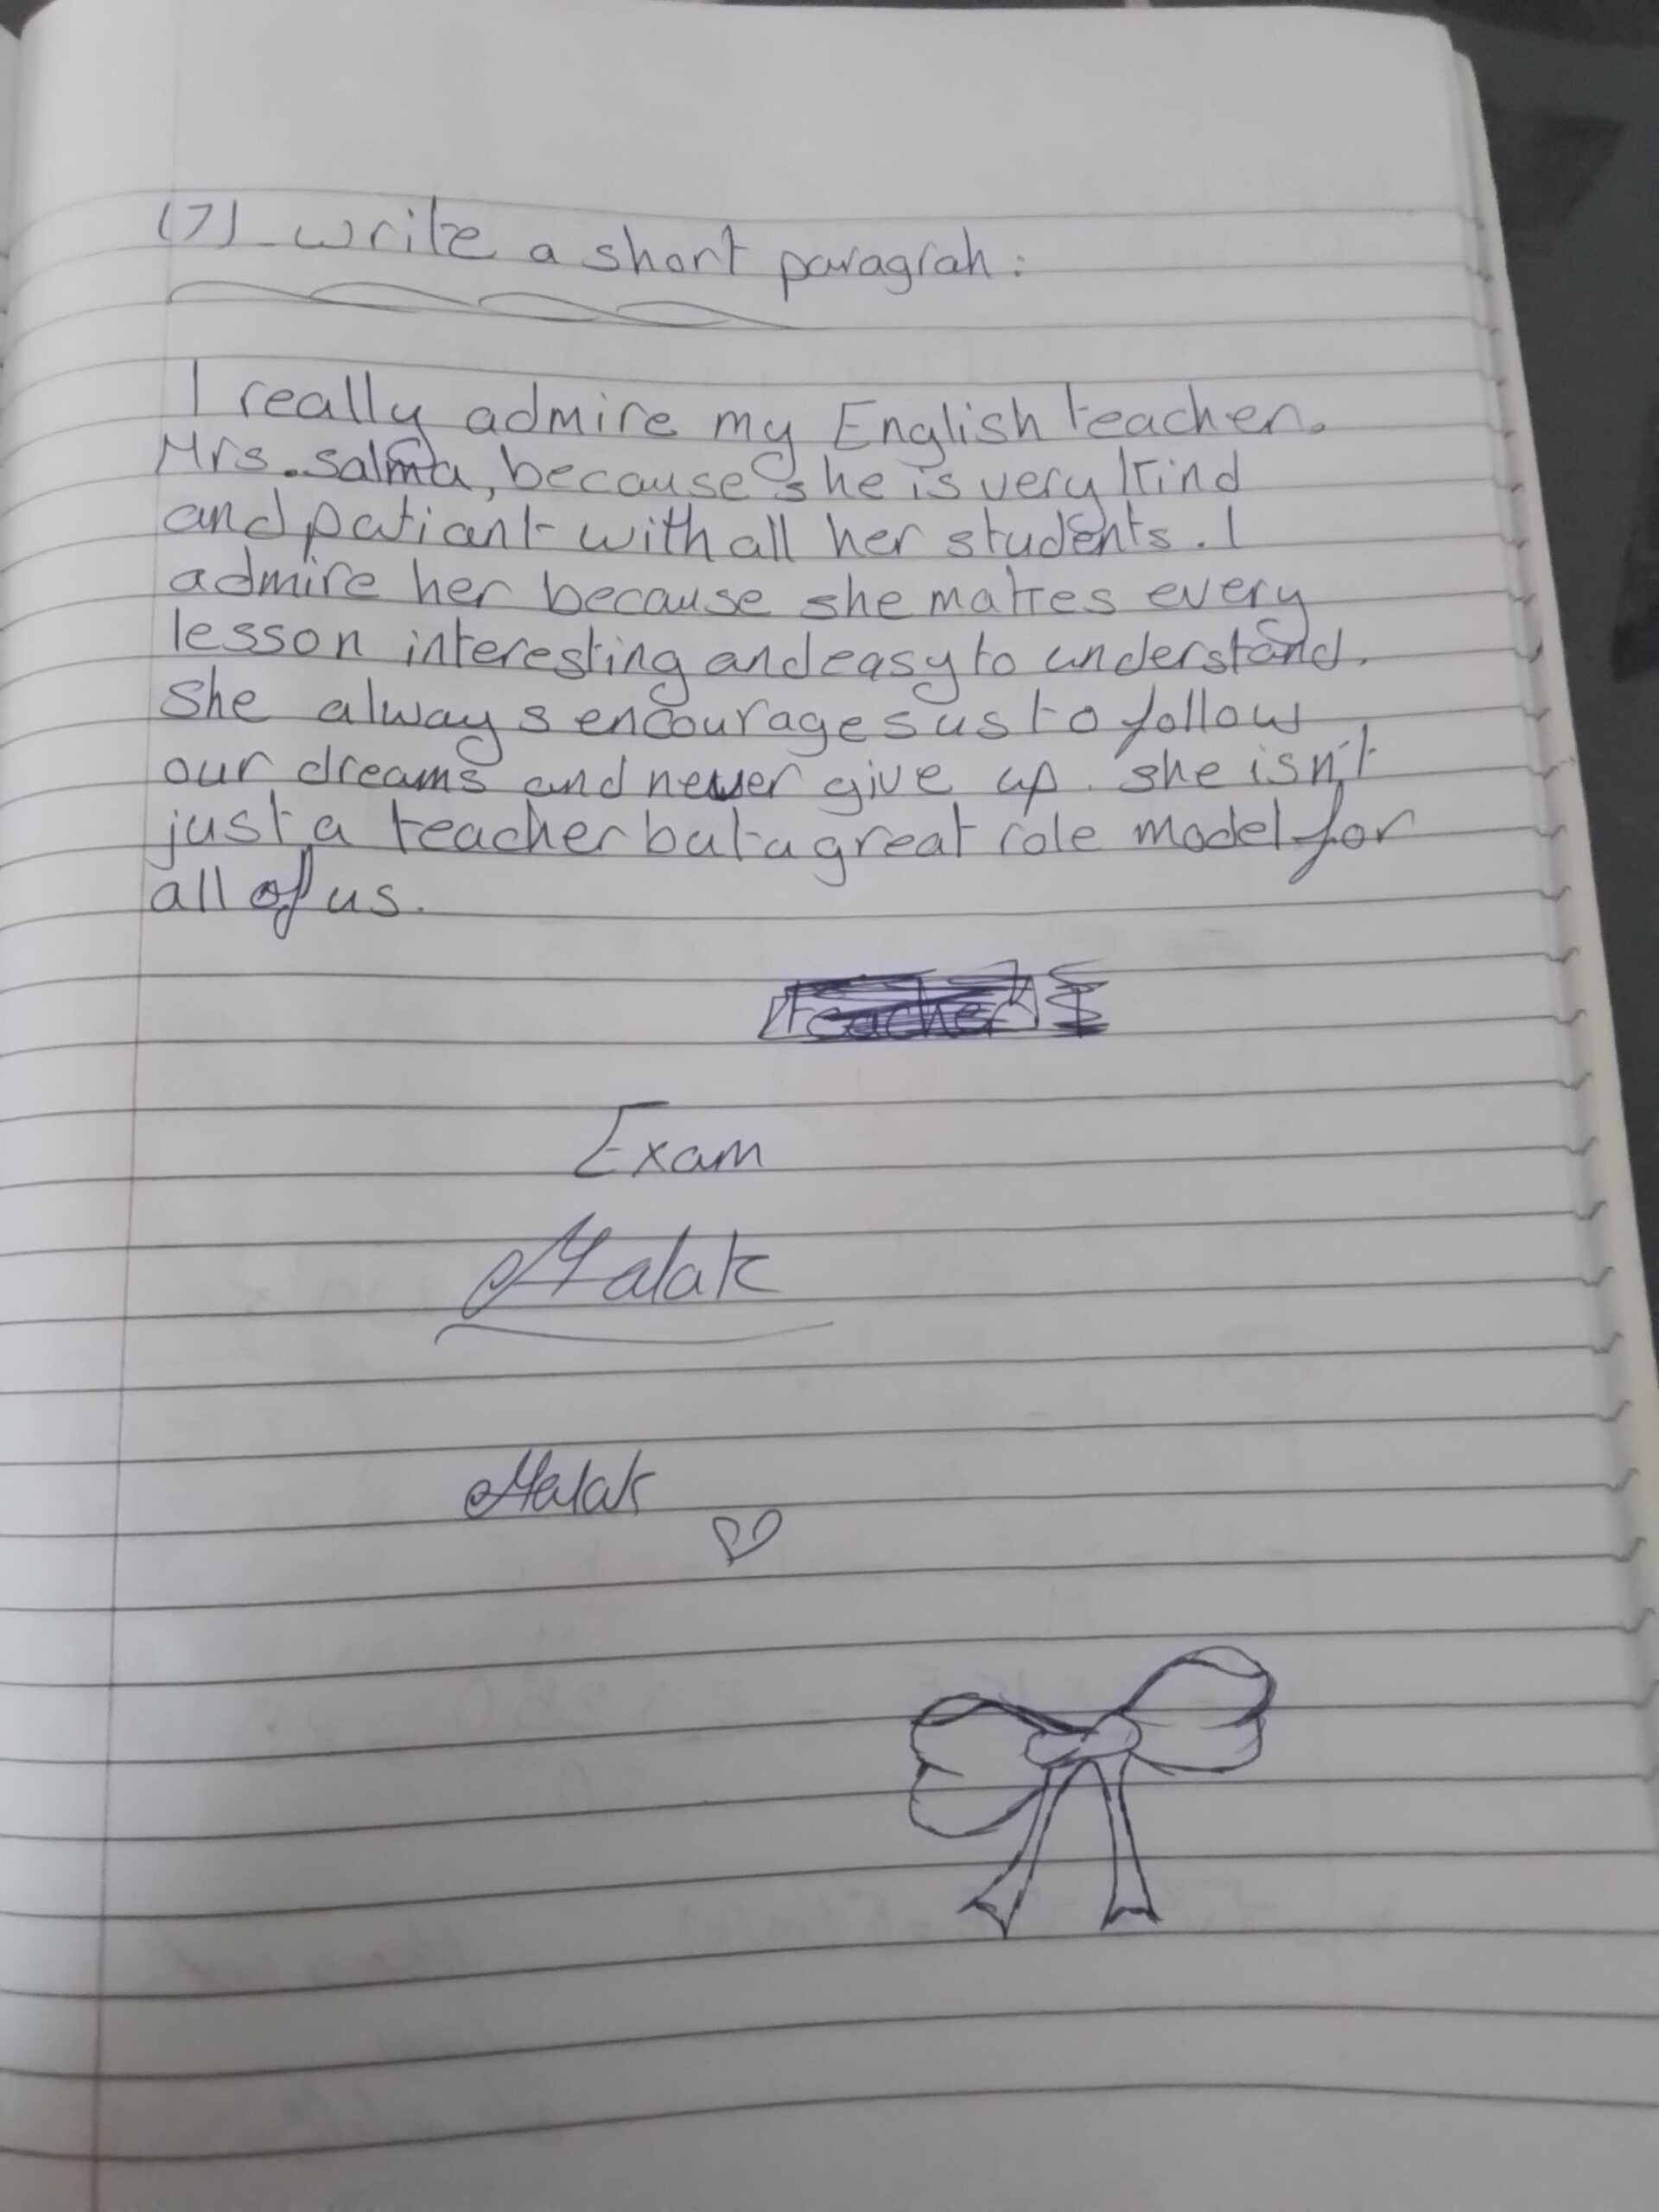 (7)_ write a short paragrah:
I really admire my English teacher.
Mrs. salma, because she is very kind
and patiant with all her students. I
admire her because she makes every
lesson interesting and easy to understand.
She always encourages us to follow
our dreams and never give up. she isn't
just a teacher but a great role model for
all of us.
Exam
Malak
Malak